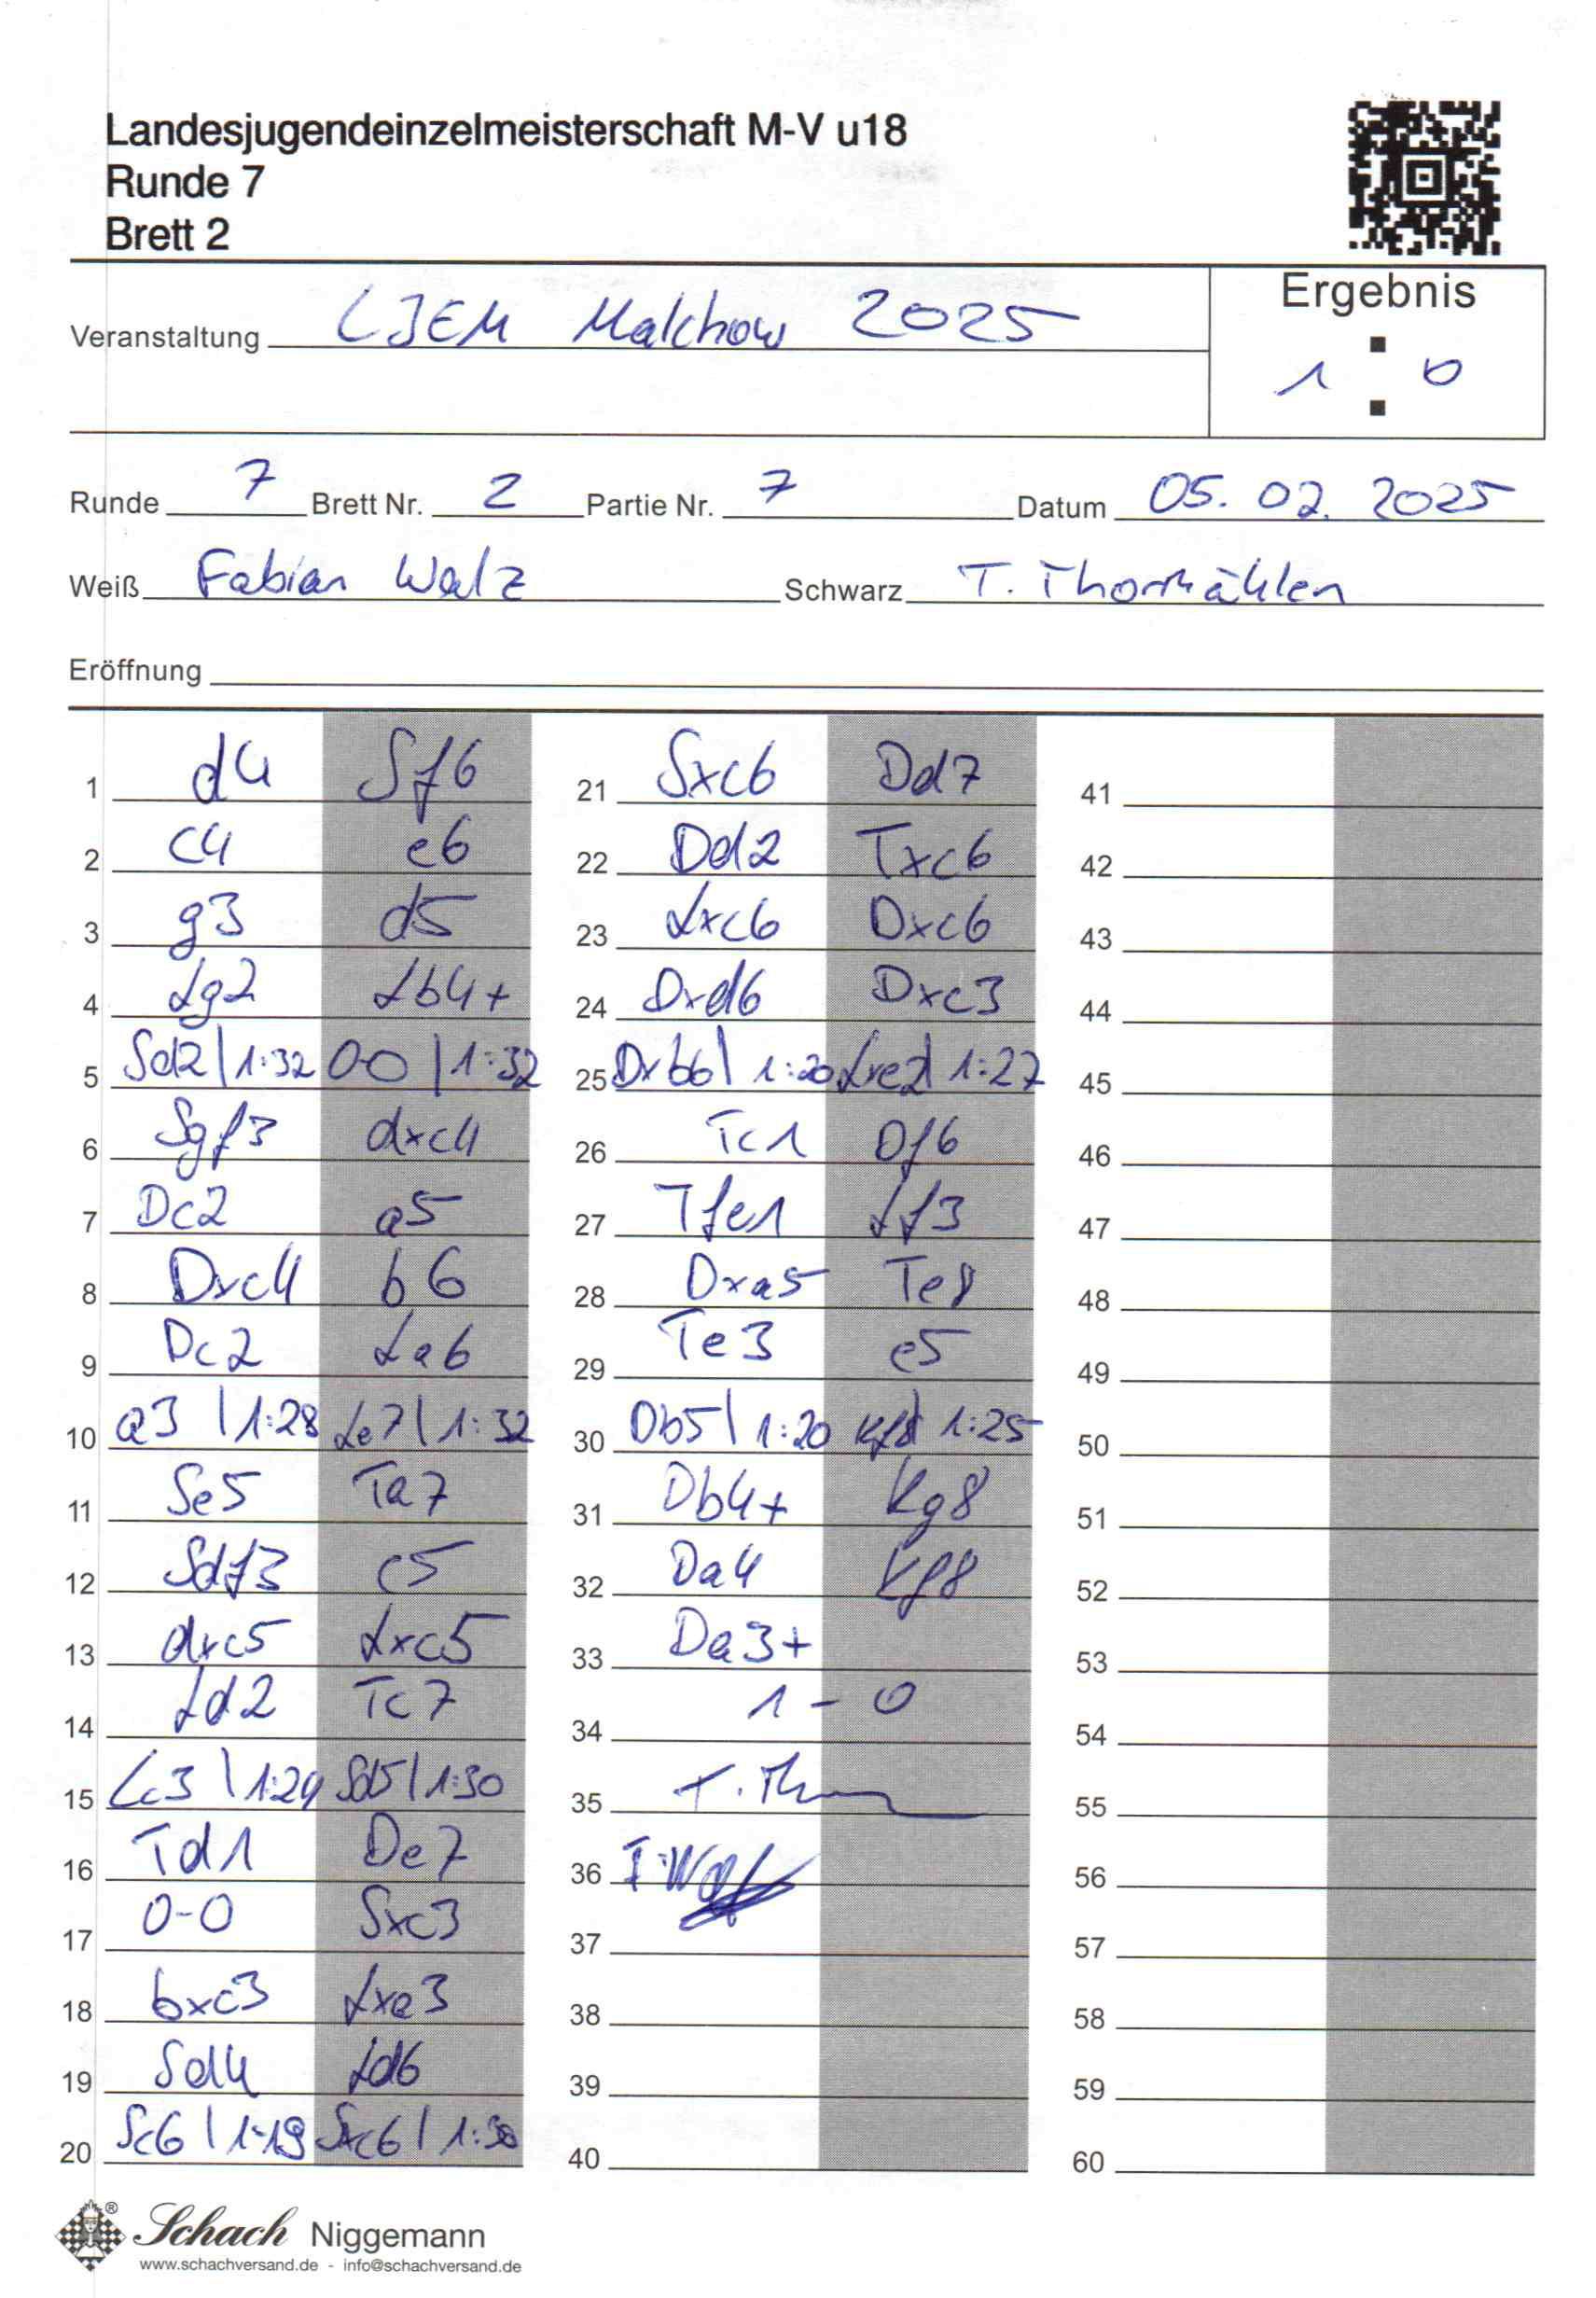 Landesjugendeinzelmeisterschaft M-V u18
Runde 7
Brett 2
Ergebnis
Veranstaltung LJEM Malchow 2025
1 : 0
Runde 7 Brett Nr. 2 Partie Nr. 7 Datum 05. 02. 2025
Weiß Fabian Walz Schwarz T. Thormählen
Eröffnung
1 d4 Sf6
2 c4 e6
3 g3 d5
4 Lg2 Lb4+
5 Sd2 | 1:32 0-0 | 1:32
6 Sgf3 dxc4
7 Dc2 a5
8 Dxc4 b6
9 Dc2 La6
10 a3 | 1:28 Le7 | 1:32
11 Se5 Ta7
12 Sdf3 c5
13 dxc5 Lxc5
14 Ld2 Tc7
15 Lc3 | 1:24 Sd5 | 1:30
16 Td1 De7
17 0-0 Sxc3
18 bxc3 Lxa3
19 Sd4 Ld6
20 Sc6 | 1:19 Sxc6 | 1:30
21 Sxc6 Dd7
22 Dd2 Txc6
23 Lxc6 Dxc6
24 Dxd6 Dxc3
25 Dxb6 | 1:20 Lxe2 | 1:27
26 Tc1 Df6
27 Tfe1 Lf3
28 Dxa5 Te8
29 Te3 e5
30 Db5 | 1:20 Kf8 | 1:25
31 Db4+ Kg8
32 Da4 Kf8
33 Da3+
34 1 - 0
35 T. Th
36 F. Wal
37
38
39
40
41
42
43
44
45
46
47
48
49
50
51
52
53
54
55
56
57
58
59
60
Schach Niggemann
www.schachversand.de - info@schachversand.de